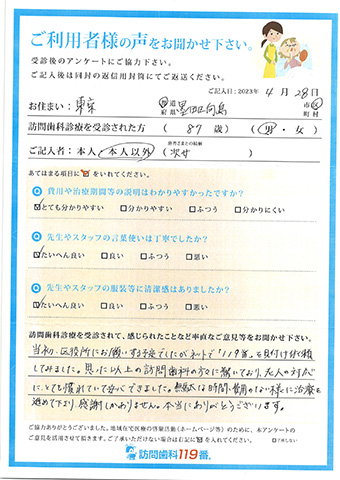 ご利用者様の声をお聞かせ下さい。
受診後のアンケートにご協力下さい。
ご記入後は同封の返信用封筒にてご返送ください。
ご記入日:2023年 4月 28日
お住まい: 東京 都道府県 墨田区向島 市区町村
訪問歯科診療を受診された方 ( 87 歳) ( 男 ・ 女 )
ご記入者:本人・本人以外 患者さまとの続柄 ( 次女 )
あてはまる項目に☑をいれてください。
Q 費用や治療期間等の説明はわかりやすかったですか?
☑とても分かりやすい □分かりやすい □ふつう □分かりにくい
Q 先生やスタッフの言葉使いは丁寧でしたか?
☑たいへん良い □良い □ふつう □悪い
Q 先生やスタッフの服装等に清潔感はありましたか?
☑たいへん良い □良い □ふつう □悪い
訪問歯科診療を受診されて、感じられたことなど率直なご意見等をお聞かせ下さい。
当初、区役所にお願いする予定でしたがネットで「119番」を見付け依頼
してみました。思った以上の訪問歯科の方々に驚いており、老人の対応
にとても慣れていて安心できました。無駄な時間、費用のない様に治療を
進めて下さり、感謝しかありません。本当にありがとうございます。
ご協力ありがとうございました。地域在宅医療の啓発活動(ホームページ等)のために、本アンケートの
ご意見を活用させて頂きます。ご了承いただけない場合は右記に☑を入れてください。 □了承しない
訪問歯科119番®